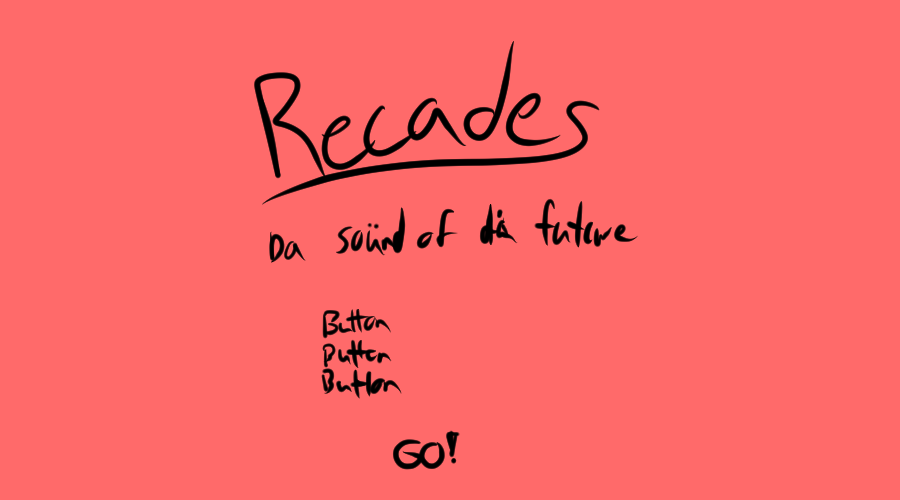 Recades
Da soünd of då future
Button
Button
Button
GO!